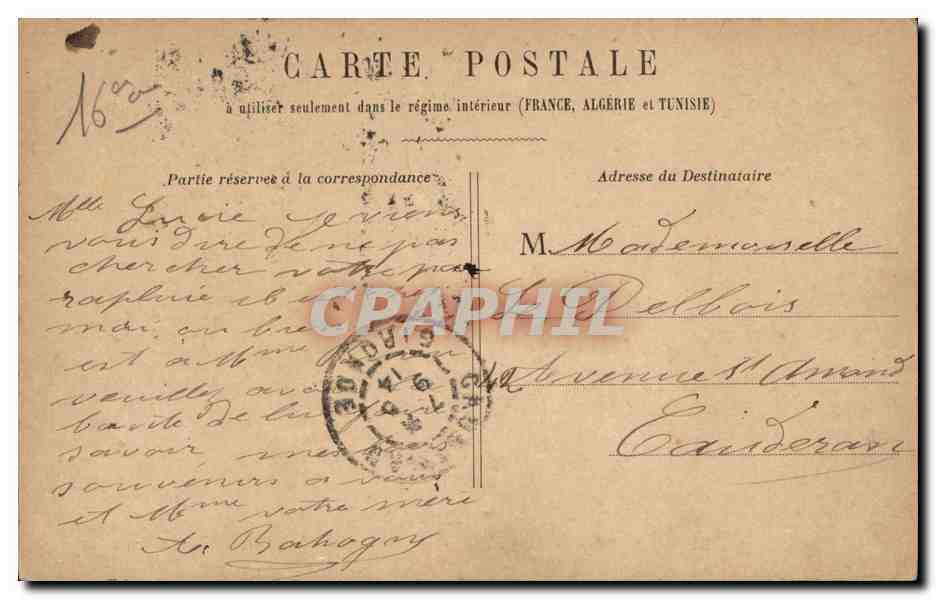 CARTE POSTALE
à utiliser seulement dans le régime intérieur (FRANCE, ALGÉRIE et TUNISIE)
16
Partie réservée à la correspondance
Mlle Lucie je viens
vous dire de ne pas
chercher votre pa
rapluie il est
moi ou
est à Mme
veuillez
bonté de lui
savoir mes
souvenirs a vous
et Mme votre mère
A. Bahogny
Adresse du Destinataire
M. Mademoiselle
L. Delbois
42 Avenue St Amand
Cauderan
CPAPHIL
GIRONDE